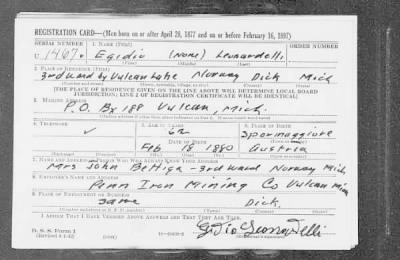 REGISTRATION CARD—(Men born on or after April 28, 1877 and on or before February 16, 1897)
SERIAL NUMBER 1. NAME (Print)
U 1467 Egidio (None) Leonardelli
2. PLACE OF RESIDENCE (Print)
3rd ward by Vulcan Lake Norway Dick Mich
[THE PLACE OF RESIDENCE GIVEN ON THE LINE ABOVE WILL DETERMINE LOCAL BOARD
JURISDICTION; LINE 2 OF REGISTRATION CERTIFICATE WILL BE IDENTICAL]
3. MAILING ADDRESS
P.O. Bx 188 Vulcan, Mich.
4. TELEPHONE 5. AGE IN YEARS 6. PLACE OF BIRTH
62 Spormaggiore
DATE OF BIRTH
Feb 18 1880 Austria
7. NAME AND ADDRESS OF PERSON WHO WILL ALWAYS KNOW YOUR ADDRESS
Mrs John Bettiga - 3rd ward Norway Mich.
8. EMPLOYER'S NAME AND ADDRESS
Penn Iron Mining Co Vulcan Mich
9. PLACE OF EMPLOYMENT OR BUSINESS
Same Dick.
I AFFIRM THAT I HAVE VERIFIED ABOVE ANSWERS AND THAT THEY ARE TRUE.
D. S. S. Form 1